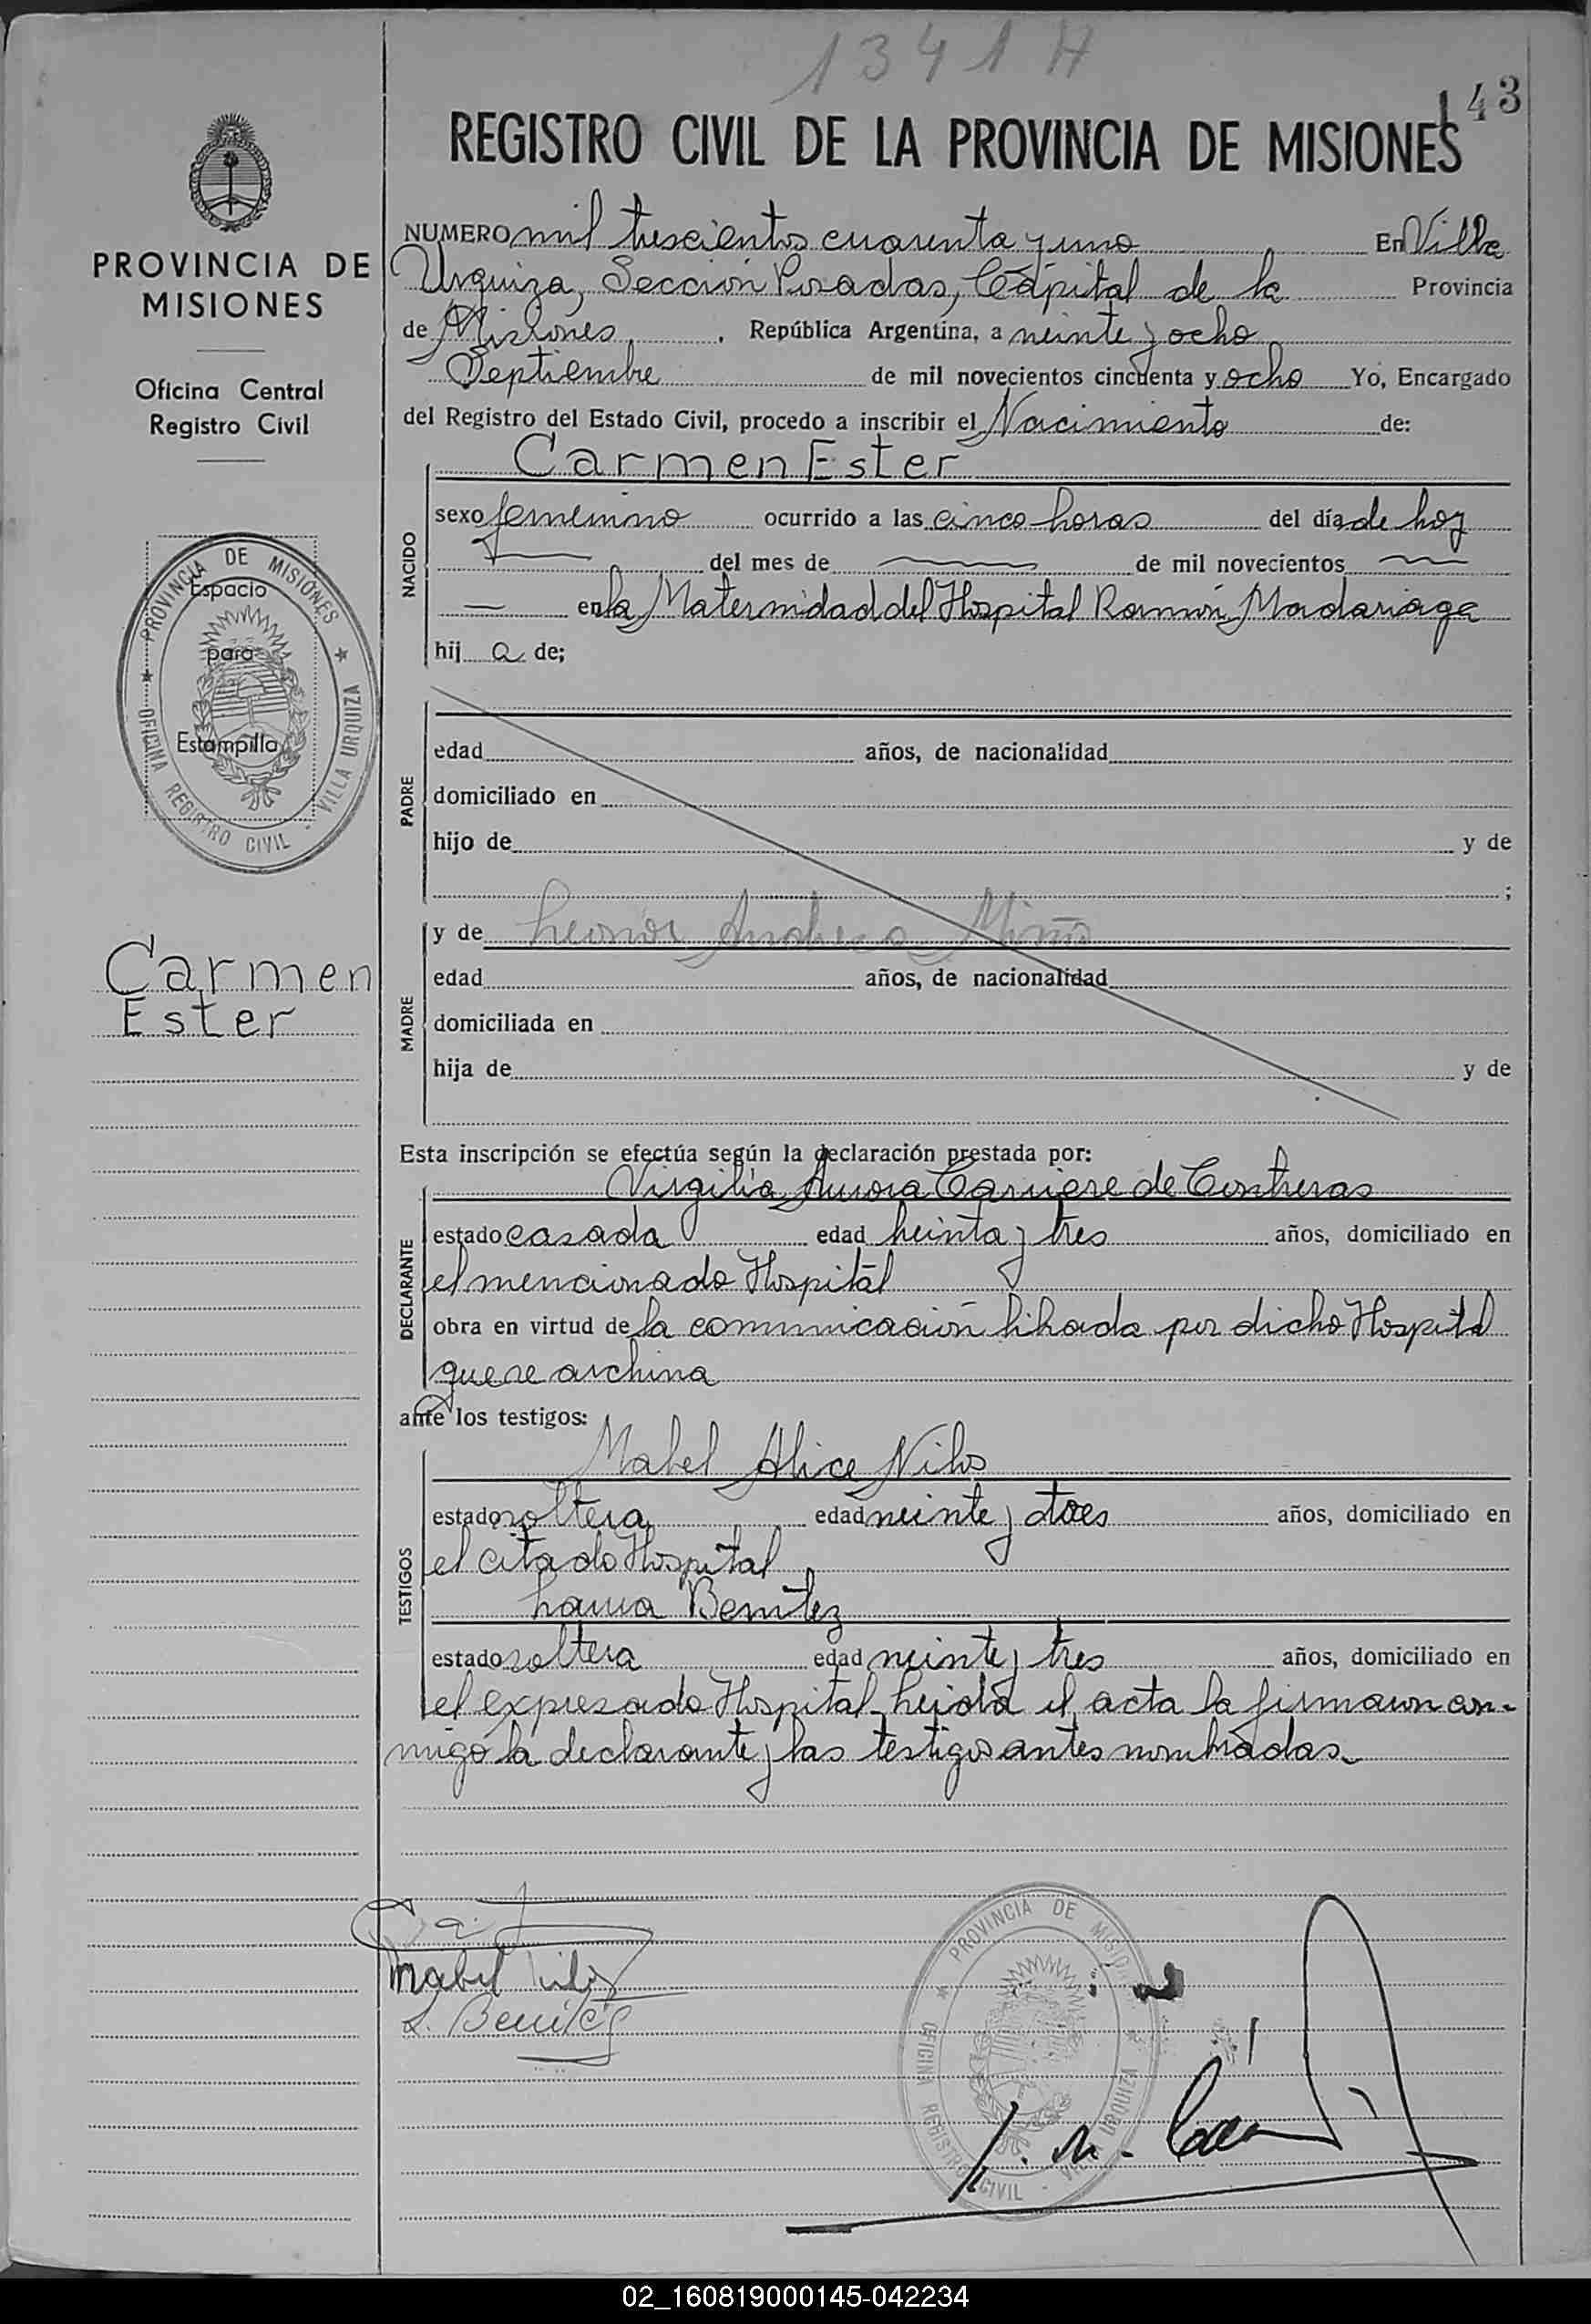 1341 H
143
REGISTRO CIVIL DE LA PROVINCIA DE MISIONES
PROVINCIA DE
MISIONES
Oficina Central
Registro Civil
PROVINCIA DE MISIONES
OFICINA REGISTRO CIVIL - VILLA URQUIZA
Espacio
para
Estampilla
Carmen
Ester
NUMERO mil trescientos cuarenta y uno En Villa
Urquiza, Sección Posadas, Capital de la Provincia
de Misiones, República Argentina, a veinte y ocho
Septiembre de mil novecientos cincuenta y ocho Yo, Encargado
del Registro del Estado Civil, procedo a inscribir el Nacimiento de:
NACIDO
Carmen Ester
sexo femenino ocurrido a las cinco horas del día de hoy
del mes de de mil novecientos
en la Maternidad del Hospital Ramón Madariaga
hija de;
PADRE
edad años, de nacionalidad
domiciliado en
hijo de y de
;
MADRE
y de Leonor Andrea Miño
edad años, de nacionalidad
domiciliada en
hija de y de
Esta inscripción se efectúa según la declaración prestada por:
DECLARANTE
Virgilia Aurora Carriere de Contreras
estado casada edad treinta y tres años, domiciliado en
el mencionado Hospital
obra en virtud de la comunicación librada por dicho Hospital
que se archiva
ante los testigos:
TESTIGOS
Mabel Alice Nilos
estado soltera edad veinte y dos años, domiciliado en
el citado Hospital
Laura Benitez
estado soltera edad veinte y tres años, domiciliado en
el expresado Hospital. Leída el acta la firmaron con-
migo la declarante y las testigos antes nombradas.
Mabel
L. Benitez
PROVINCIA DE MISIONES
OFICINA REGISTRO CIVIL - VILLA URQUIZA
02_160819000145-042234